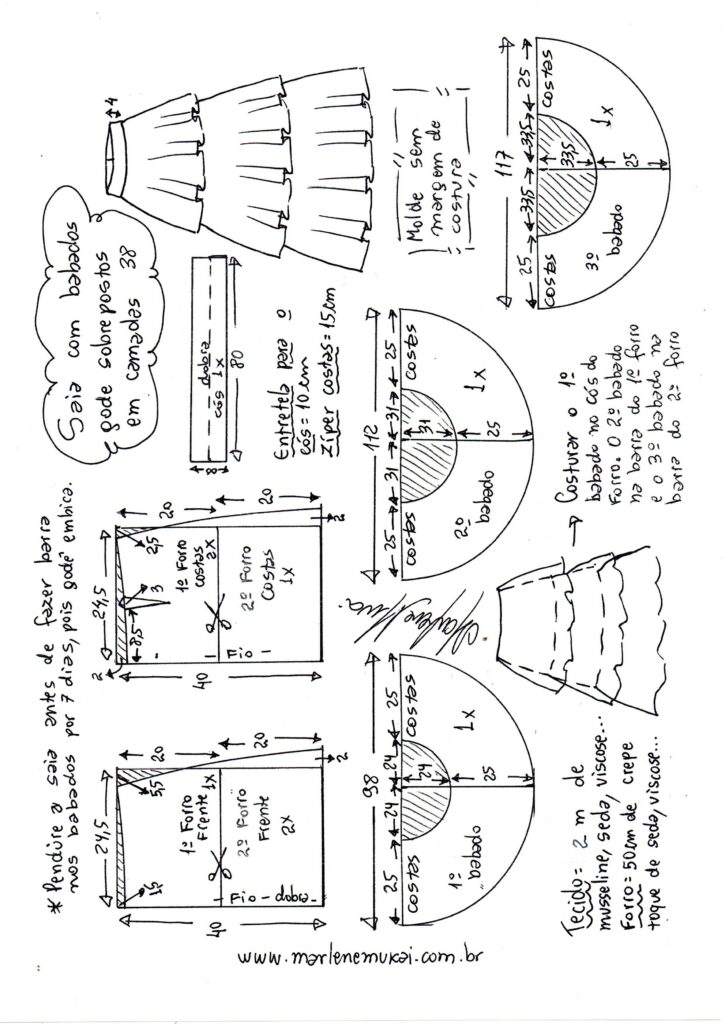 * Pendure a saia antes de fazer barra
nos babados por 7 dias, pois godê embica.
Saia com babados
gode sobrepostos
em camadas 38
4
24,5
1,5
5,5
20
20
2
40
1º Forro
Frente 1x
2º Forro
Frente
2x
Fio - dobra -
24,5
2
8,5
3
2,5
20
20
2
40
1º Forro
costas
2x
2º Forro
Costas
1x
- Fio -
8
dobra
cós 1x
80
Entretela para o
cós = 10 cm
Zíper costas = 15 cm
Molde sem
margem de
costura
98
25
24
24
25
costas
costas
24
25
1º
babado
1x
112
25
31
31
25
costas
costas
31
25
2º
babado
1x
117
25
33,5
33,5
25
costas
costas
33,5
25
3º
babado
1x
www.marlenemukai.com.br
Tecido = 2 m de
musseline, seda, viscose...
Forro = 50 cm de crepe
toque de seda, viscose...
Costurar o 1º
babado no cós do
Forro. O 2º babado
na barra do 1º forro
e o 3º babado na
barra do 2º forro